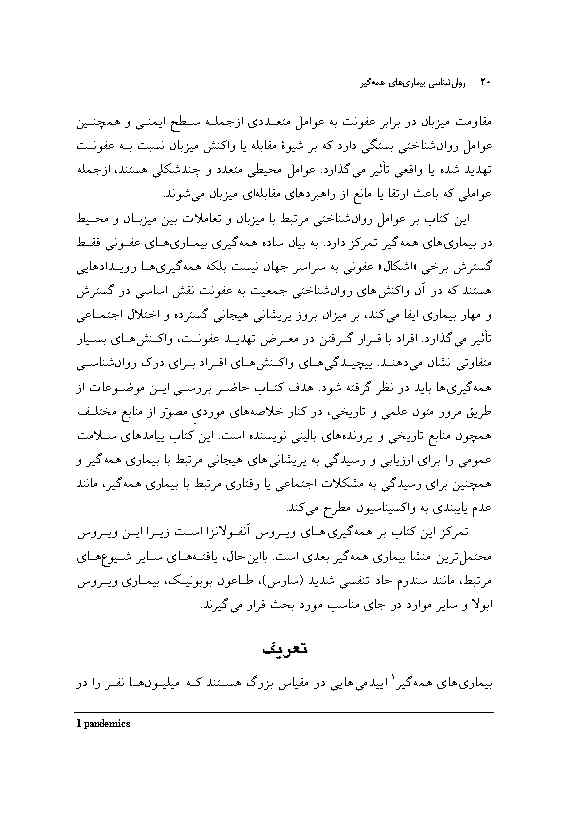 ۲۰ روان‌شناسی بیماری‌های همه‌گیر
مقاومت میزبان در برابر عفونت به عوامل متعددی ازجمله سطح ایمنی و همچنین
عوامل روان‌شناختی بستگی دارد که بر شیوۀ مقابله یا واکنش میزبان نسبت به عفونت
تهدید شده یا واقعی تأثیر می‌گذارد. عوامل محیطی متعدد و چندشکلی هستند، ازجمله
عواملی که باعث ارتقا یا مانع از راهبردهای مقابله‌ای میزبان می‌شوند.
این کتاب بر عوامل روان‌شناختی مرتبط با میزبان و تعاملات بین میزبان و محیط
در بیماری‌های همه‌گیر تمرکز دارد. به بیان ساده همه‌گیری بیماری‌های عفونی فقط
گسترش برخی «اشکال» عفونی به سراسر جهان نیست بلکه همه‌گیری‌ها رویدادهایی
هستند که در آن واکنش‌های روان‌شناختی جمعیت به عفونت نقش اساسی در گسترش
و مهار بیماری ایفا می‌کند، بر میزان بروز پریشانی هیجانی گسترده و اختلال اجتماعی
تأثیر می‌گذارد. افراد با قرار گرفتن در معرض تهدید عفونت، واکنش‌های بسیار
متفاوتی نشان می‌دهند. پیچیدگی‌های واکنش‌های افراد برای درک روان‌شناسی
همه‌گیری‌ها باید در نظر گرفته شود. هدف کتاب حاضر بررسی این موضوعات از
طریق مرور متون علمی و تاریخی، در کنار خلاصه‌های موردی مصوّر از منابع مختلف
همچون منابع تاریخی و پرونده‌های بالینی نویسنده است. این کتاب پیامدهای سلامت
عمومی را برای ارزیابی و رسیدگی به پریشانی‌های هیجانی مرتبط با بیماری همه‌گیر و
همچنین برای رسیدگی به مشکلات اجتماعی یا رفتاری مرتبط با بیماری همه‌گیر، مانند
عدم پایبندی به واکسیناسیون مطرح می‌کند.
تمرکز این کتاب بر همه‌گیری‌های ویروس آنفولانزا است زیرا این ویروس
محتمل‌ترین منشأ بیماری همه‌گیر بعدی است. بااین‌حال، یافته‌های سایر شیوع‌های
مرتبط، مانند سندرم حاد تنفسی شدید (سارس)، طاعون بوبونیک، بیماری ویروس
ابولا و سایر موارد در جای مناسب مورد بحث قرار می‌گیرند.
تعریف
بیماری‌های همه‌گیر۱ اپیدمی‌هایی در مقیاس بزرگ هستند که میلیون‌ها نفر را در
1 pandemics